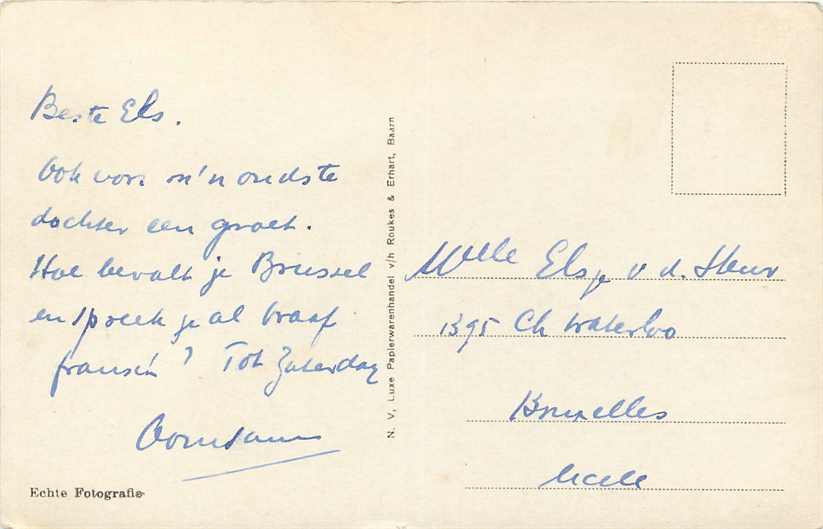 Beste Els.
Ook voor m'n oudste
dochter een groet.
Hoe bevalt je Brussel
en spreek je al braaf
frans ? Tot Zaterdag
Echte Fotografie
N. V. Luxe Papierwarenhandel v/h Roukes & Erhart, Baarn
Mlle Elsje v. d.
1395 Ch Waterloo
Bruxelles
Uccle